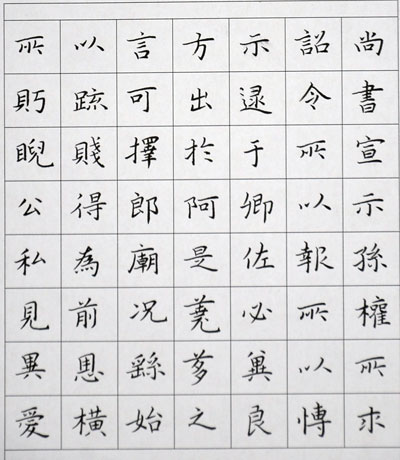 尚書宣示孫權所求
詔令所以報所以博
示逮于卿佐必冀良
方出於阿是蕘芻之
言可擇郎廟况繇始
以疏賤得為前恩橫
所眄睨公私見異愛